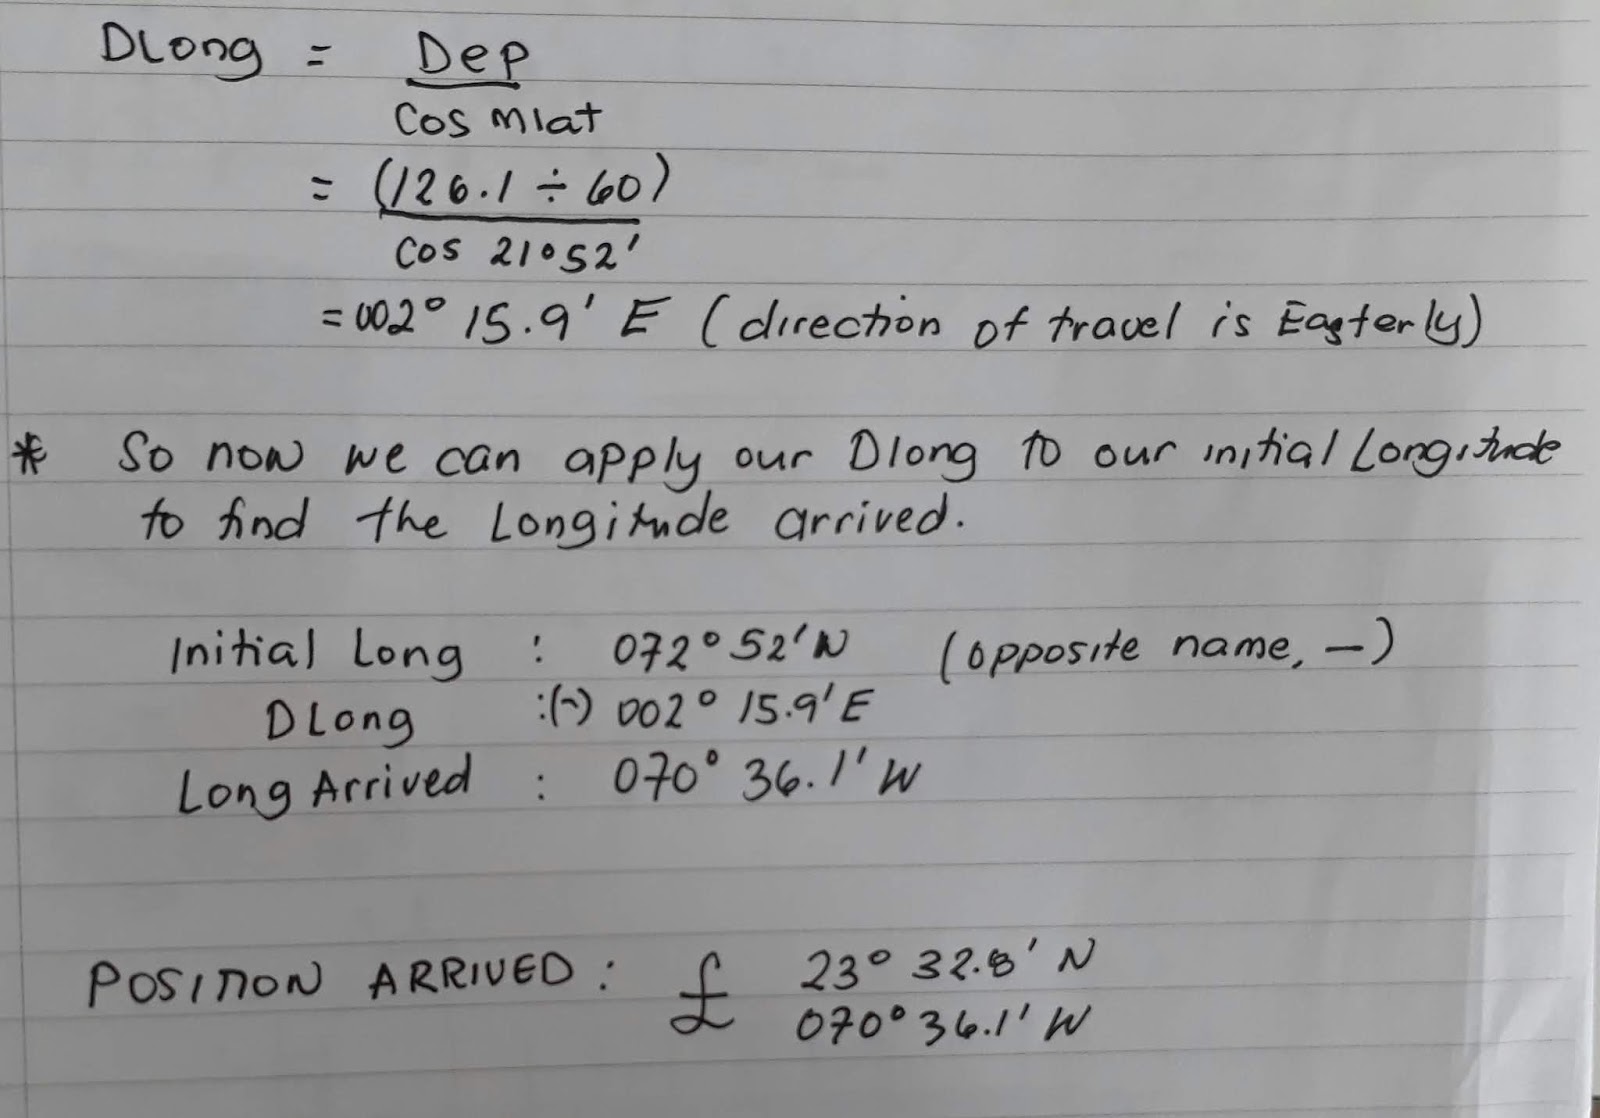 DLong = Dep
Cos mlat
= (126.1 ÷ 60)
Cos 21°52'
= 002° 15.9' E (direction of travel is Easterly)
* So now we can apply our Dlong to our initial Longitude
to find the Longitude arrived.
Initial Long : 072° 52' N (opposite name, –)
DLong :(~) 002° 15.9' E
Long Arrived : 070° 36.1' W
POSITION ARRIVED : £ 23° 32.8' N
070° 36.1' W